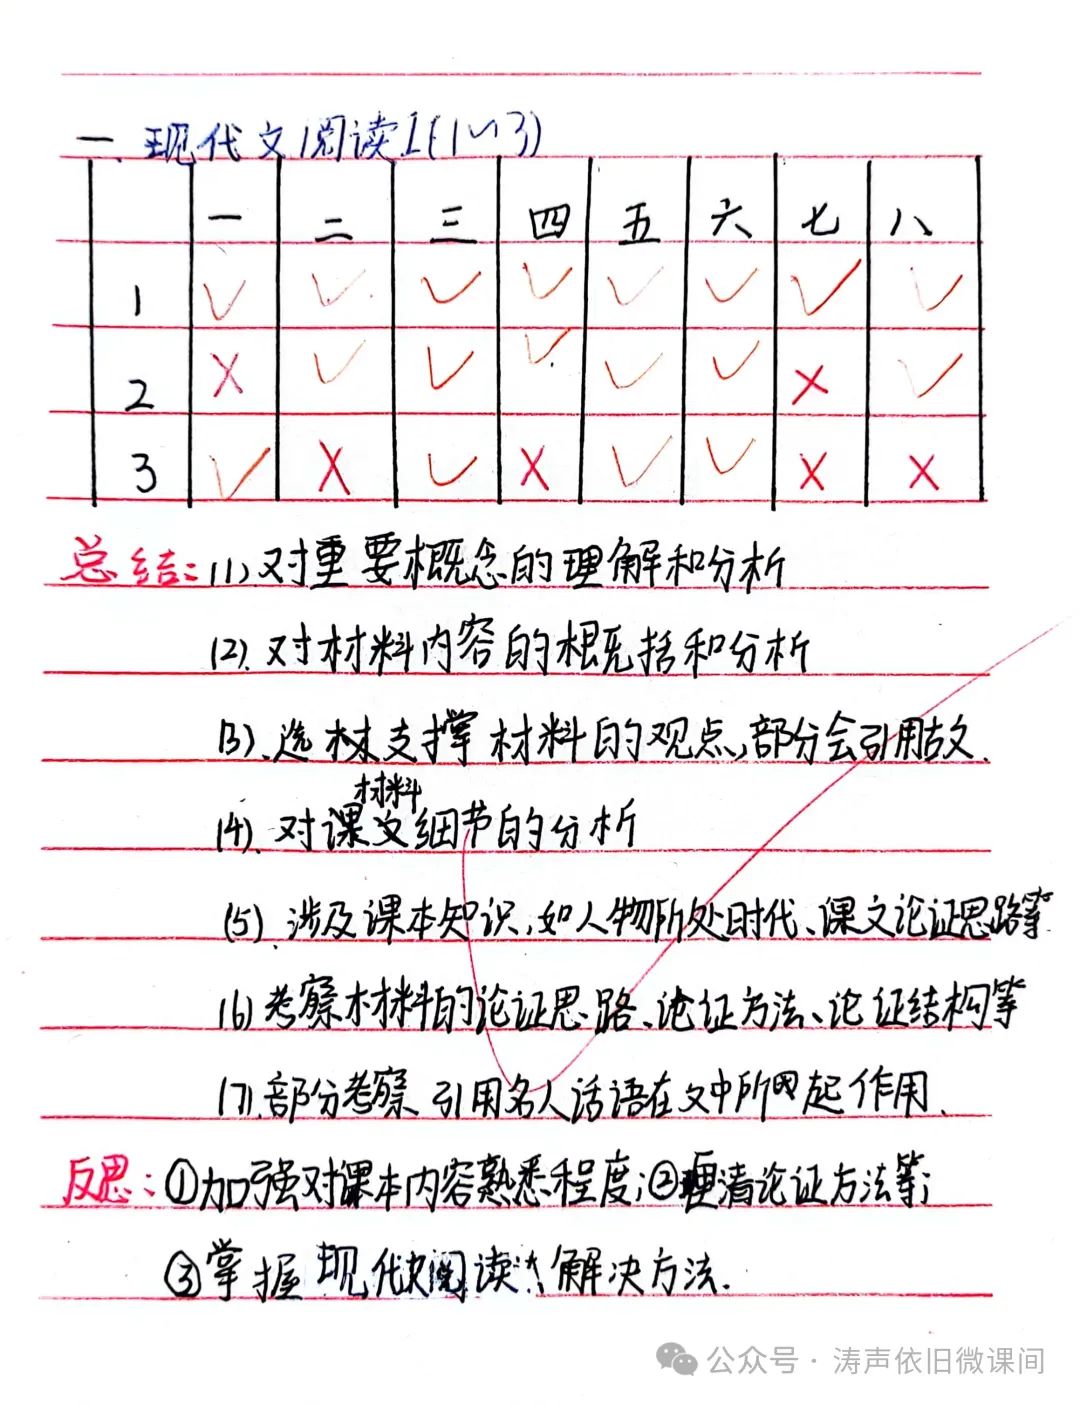 一、现代文阅读I(1~3)
一 二 三 四 五 六 七 八
1 ✓ ✓ ✓ ✓ ✓ ✓ ✓ ✓
2 × ✓ ✓ ✓ ✓ ✓ × ✓
3 ✓ × ✓ × ✓ ✓ × ×
总结:(1)、对重要概念的理解和分析
(2)、对材料内容的概括和分析
(3)、选材支撑材料的观点,部分会引用故文.
材料
(4)、对课文细节的分析
(5)、涉及课本知识,如人物所处时代、课文论证思路等
(6)考察材料的论证思路、论证方法、论证结构等
(7)、部分考察引用名人话语在文中所起作用.
反思:①加强对课本内容熟悉程度;②理清论证方法等;
③掌握现代文阅读解决方法.
公众号·涛声依旧微课间